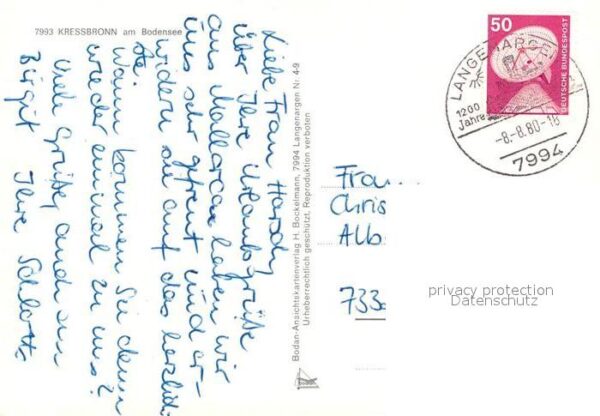 7993 KRESSBRONN am Bodensee
Liebe Frau Hardy
über Ihre Urlaubsgrüße
aus Mallorca haben wir
uns sehr gefreut und er-
widern sie auf das herzlich-
ste.
Wann kommen Sie denn
wieder einmal zu uns?
Viele Grüße auch an
Birgit Ihre
Bodan-Ansichtskartenverlag H. Bockelmann, 7994 Langenargen Nr. 4-9
Urheberrechtlich geschützt, Reproduktion verboten
50
DEUTSCHE BUNDESPOST
LANGENARGEN
1200
Jahre
-8.-8.80-18
7994
Frau
Chris
Alb
733
privacy protection
Datenschutz